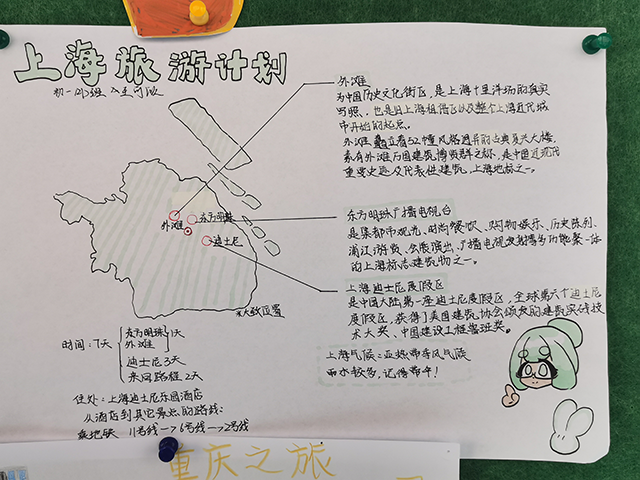 上海旅游计划
外滩
为中国历史文化街区,是上海十里洋场的真实
写照,也是旧上海租借区以及整个上海近代城
市开始的起点。
外滩矗立着52幢风格迥异的古典复兴大楼,
素有外滩万国建筑博览群之称,是中国近现代
重要史迹及代表性建筑,上海地标之一。
东方明珠
外滩
迪士尼
*大致位置
东方明珠广播电视台
是集都市观光、时尚餐饮、购物娱乐、历史陈列、
浦江游览、会展演出、广播电视发射等多功能聚一体
的上海标志建筑物之一。
上海迪士尼度假区
是中国大陆第一座迪士尼度假区,全球第六个迪士尼
度假区,获得了美国建筑协会颁发的建筑实践技
术大奖、中国建设工程鲁班奖。
上海气候:亚热带季风气候
雨水较多,记得带伞!
时间:7天
东方明珠 1天
外滩
迪士尼 3天
来回路程 2天
住处:上海迪士尼乐园酒店
从酒店到其它景点的路线:
乘地铁 11号线→6号线→2号线
重庆之旅